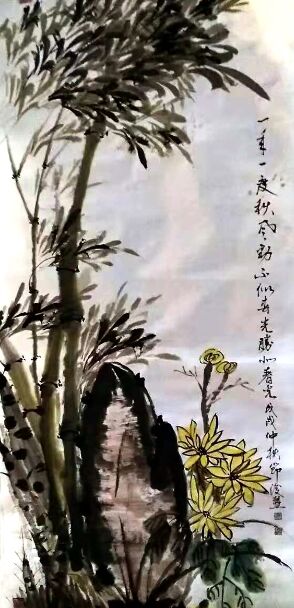 一年一度秋风劲不似春光勝似春光戊戌仲秋節